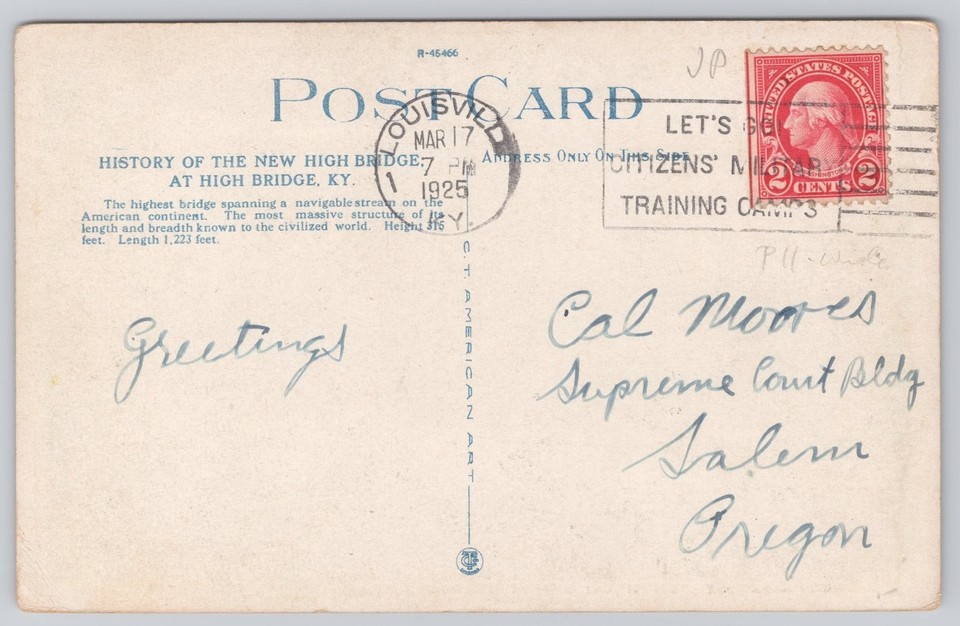 R-45466
POST CARD
JP
UNITED STATES POSTAGE
WASHINGTON
2 CENTS 2
LOUISVILLE
MAR 17
7 PM
1925
KY.
1
LET'S GO!
CITIZENS' MILITARY
TRAINING CAMPS
HISTORY OF THE NEW HIGH BRIDGE,
AT HIGH BRIDGE, KY.
The highest bridge spanning a navigable stream on the
American continent. The most massive structure of its
length and breadth known to the civilized world. Height 315
feet. Length 1,223 feet.
ADDRESS ONLY ON THIS SIDE
C.T. AMERICAN ART
Greetings
P11-Wide
Cal Moores
Supreme Court Bldg
Salem
Oregon